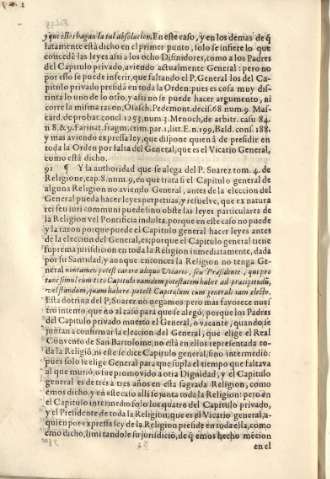 y que ellos hagan la tal absolucion. En este caso, y en los demas de q̃
latamente està dicho en el primer punto, solo se infiere lo que
concedē las leyes assi a los ocho Difinidores, como a los Padres
del Capitulo privado, aviendo actualmente General: pero no
por esso se puede inferir, que faltando el P. General los del Ca-
pitulo privado presidā en toda la Orden: pues es cosa muy dis-
tinta lo uno de lo otro, y assi no se puede hacer argumento, ni
corre la misma razon, Otasch. Pedemont. decis. 68. num. 9. Mas
card. de probat. concl. 1253. num. 3. Menoch. de arbitr. casu 84.
n. 8. & 9. Farinat. fragm. crim. par. 1. litt. E. n. 199. Bald. cons. 188.
y mas aviendo expressa ley, que dispone quien à de presidir en
toda la Orden por falta del General, que es el Vicario General,
como està dicho.
91 ¶ Y la authoridad que se alega del P. Suarez tom. 4. de
Religione, cap. 8. num. 9. en que trata si el Capitulo general de
alguna Religion no aviendo General, antes de la eleccion del
General pueda hacer leyes perpetuas, y resuelve, que ex natura
rei seu iuri communi puede no obstāte las leyes particulares de
la Religion vel Pontificia indulta; porque en este caso no puede
y la razon porque puede el Capitulo general hacer leyes antes
de la eleccion del General, es; porque el Capitulo general tiene
suprema jurisdicion en toda la Religion inmediatamente, dada
por su Santidad, y aunque entonces la Religion no tenga Ge-
neral
Esta dotrina del P. Suarez no negamos pero mas favorece nues
tro intento, que no al caso para que se alegó, porque los Padres
del Capitulo privado muerto el General, o vacante, quando se
juntan a confirmar la eleccion del General, que elige el Real
Convento de San Bartolome, no està en ellos representada to-
da la Religiō, ni esse se dice Capitulo general, sino intermedio,
pues solo se elige General para que supla el tiempo que faltava
al que murio, o fue promovido a otra Dignidad, y el Capitulo
general es de tres a tres años en esta sagrada Religion, como
emos dicho, y en este caso alli se junta toda la Religion: pero en
el Capitulo intermedio solo los quatro del Capitulo privado,
y el Presidente de toda la Religion, que es el Vicario general, a-
quien por expressa ley de la Religion preside en toda ella, como
emos dicho, limitandole su jurisdicio, de q̃ emos hecho mēcion
en el